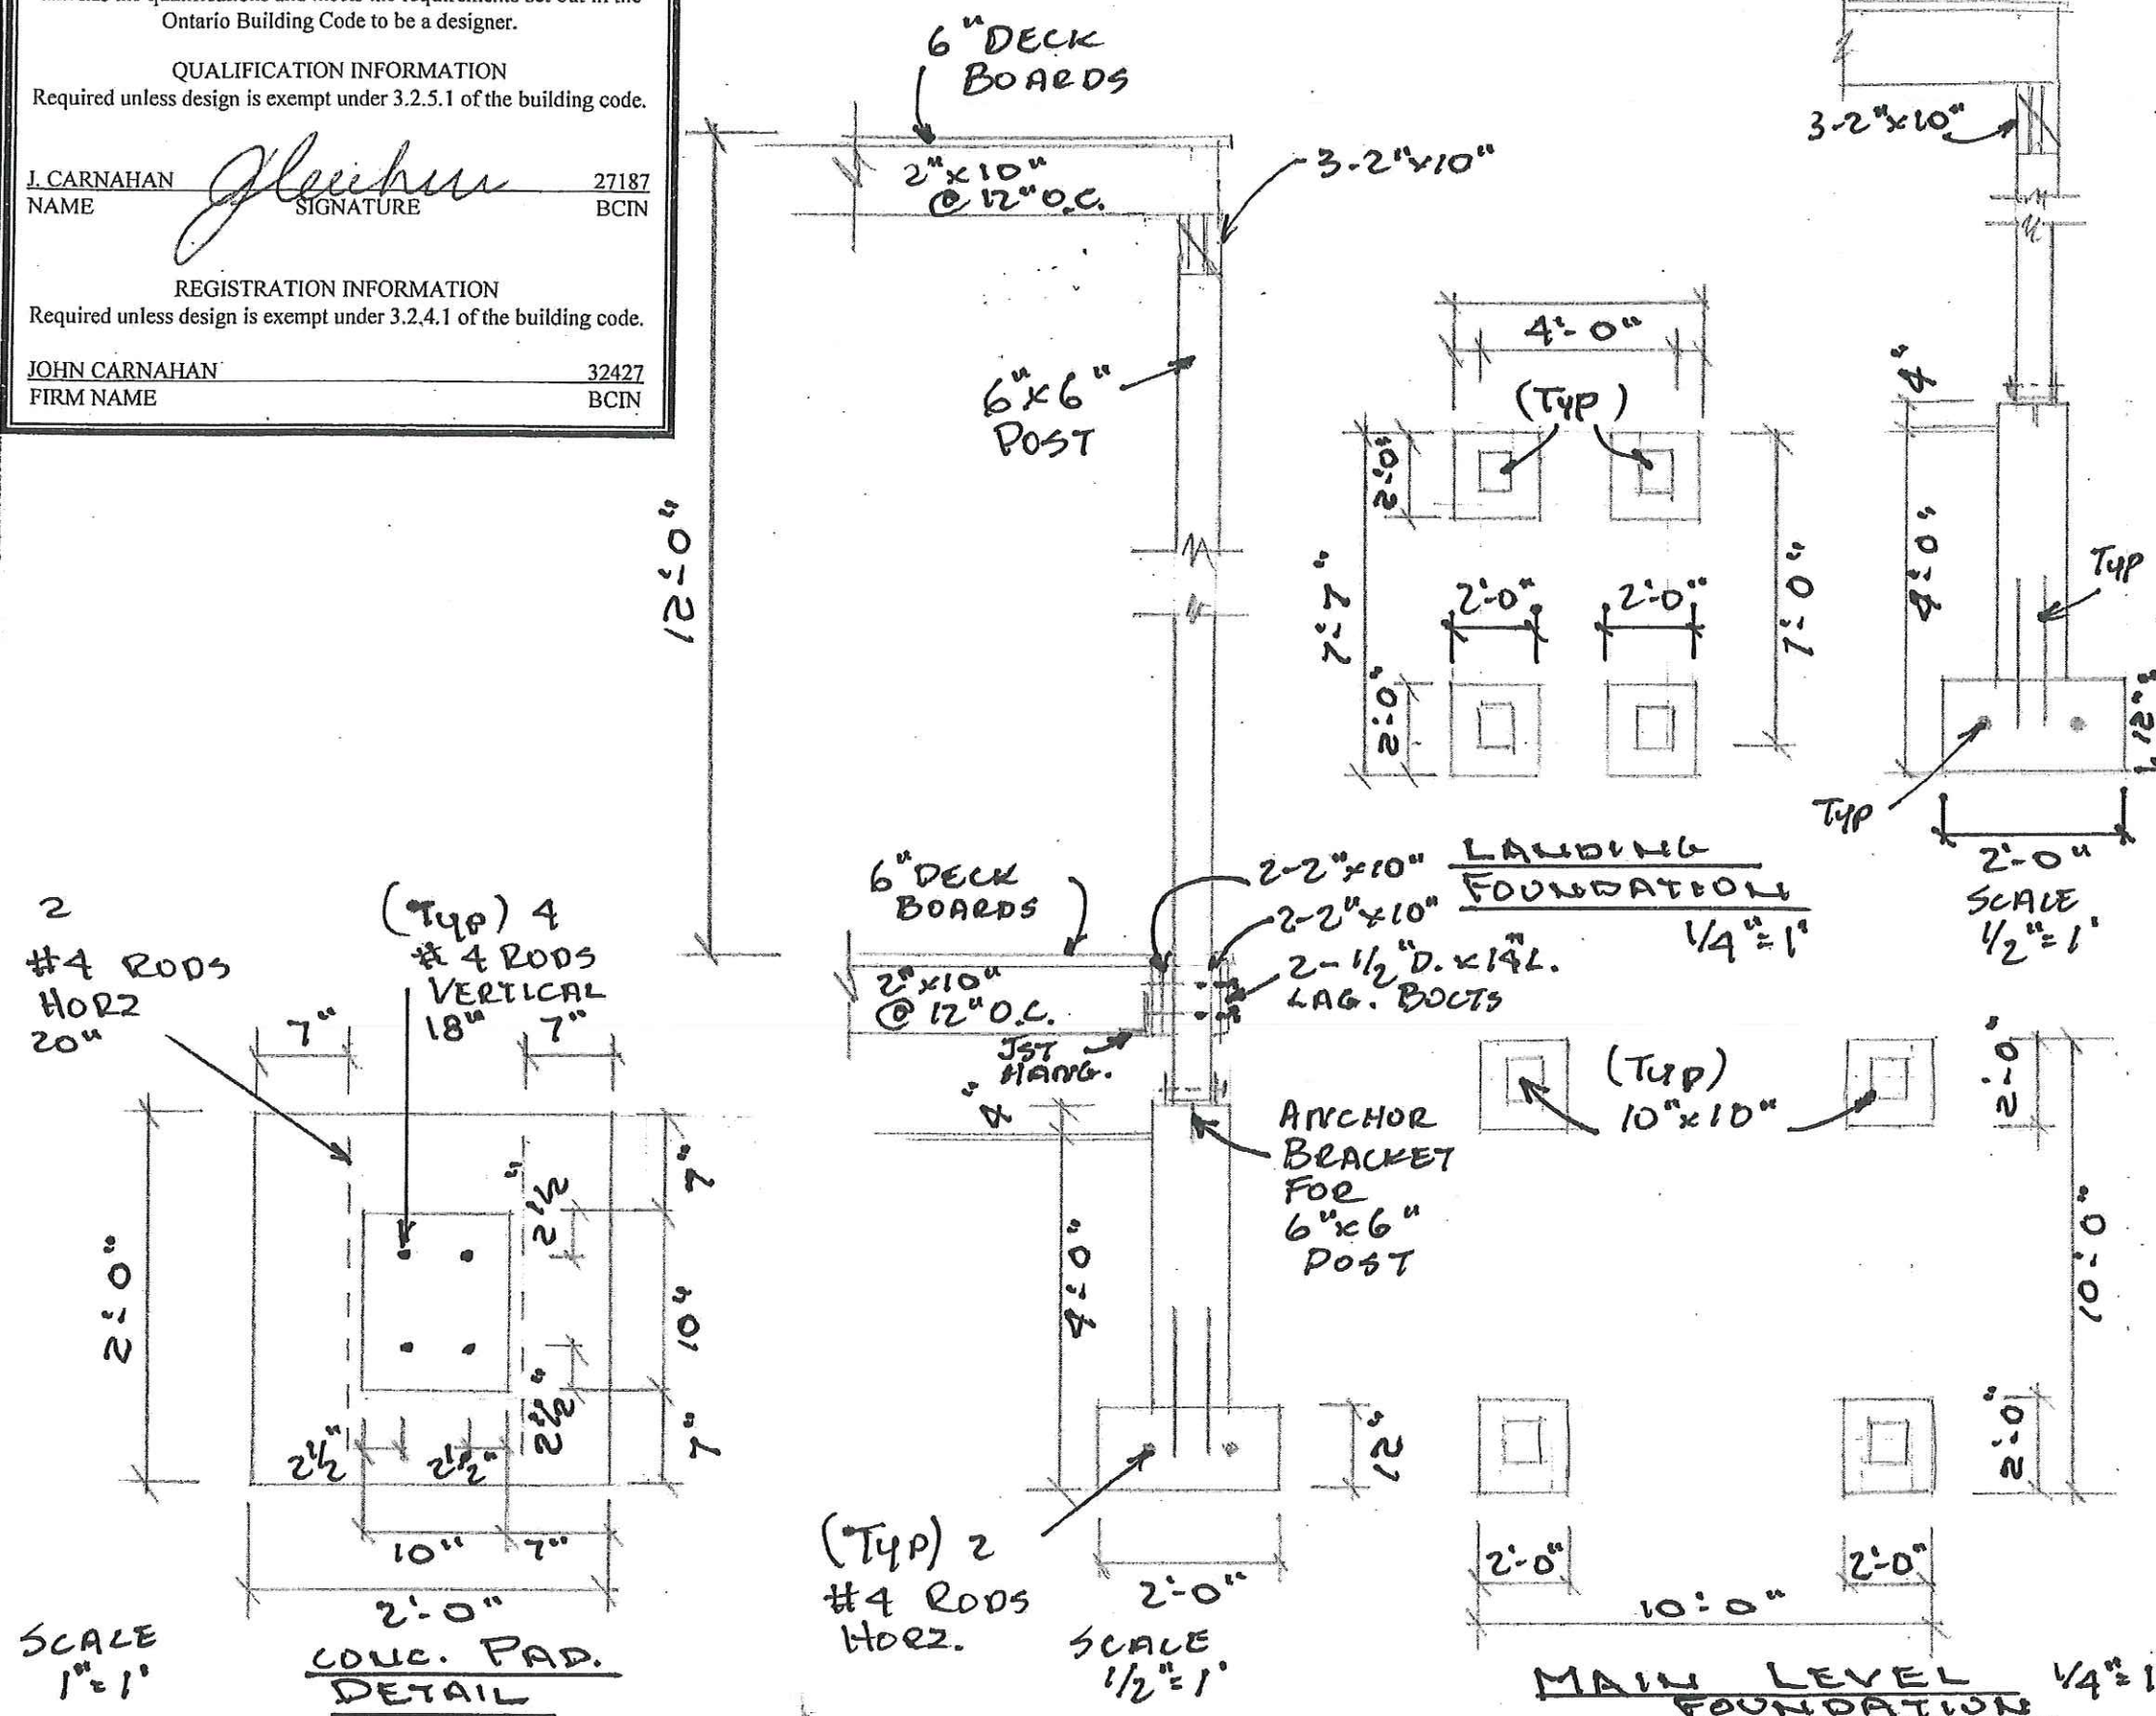 Ontario Building Code to be a designer.
QUALIFICATION INFORMATION
Required unless design is exempt under 3.2.5.1 of the building code.
J. CARNAHAN 27187
NAME SIGNATURE BCIN
REGISTRATION INFORMATION
Required unless design is exempt under 3.2.4.1 of the building code.
JOHN CARNAHAN 32427
FIRM NAME BCIN
6" DECK
BOARDS
2"x10"
@ 12" O.C.
3-2"x10"
6"x6"
POST
12'-0"
4'-0"
(TYP)
2'-0"
7'-7"
2'-0"
2'-0"
7'-0"
2'-0"
LANDING
FOUNDATION
1/4"=1'
3-2"x10"
4"
4'-0"
TYP
12"
TYP
2'-0"
SCALE
1/2"=1'
6" DECK
BOARDS
2"x10"
@ 12" O.C.
JST
HANG.
2-2"x10"
2-2"x10"
2-1/2"D. x14"L.
LAG. BOLTS
4"
ANCHOR
BRACKET
FOR
6"x6"
POST
4'-0"
12"
(TYP) 2
#4 RODS
HORZ.
2'-0"
SCALE
1/2"=1'
2
#4 RODS
HORZ
20"
(TYP) 4
#4 RODS
VERTICAL
18"
7"
7"
2'-0"
2 1/2"
7"
10"
2 1/2"
7"
2 1/2"
2 1/2"
10"
7"
2'-0"
SCALE
1"=1'
CONC. PAD.
DETAIL
(TYP)
10"x10"
2'-0"
10'-0"
2'-0"
2'-0"
2'-0"
10'-0"
MAIN LEVEL
FOUNDATION
1/4"=1